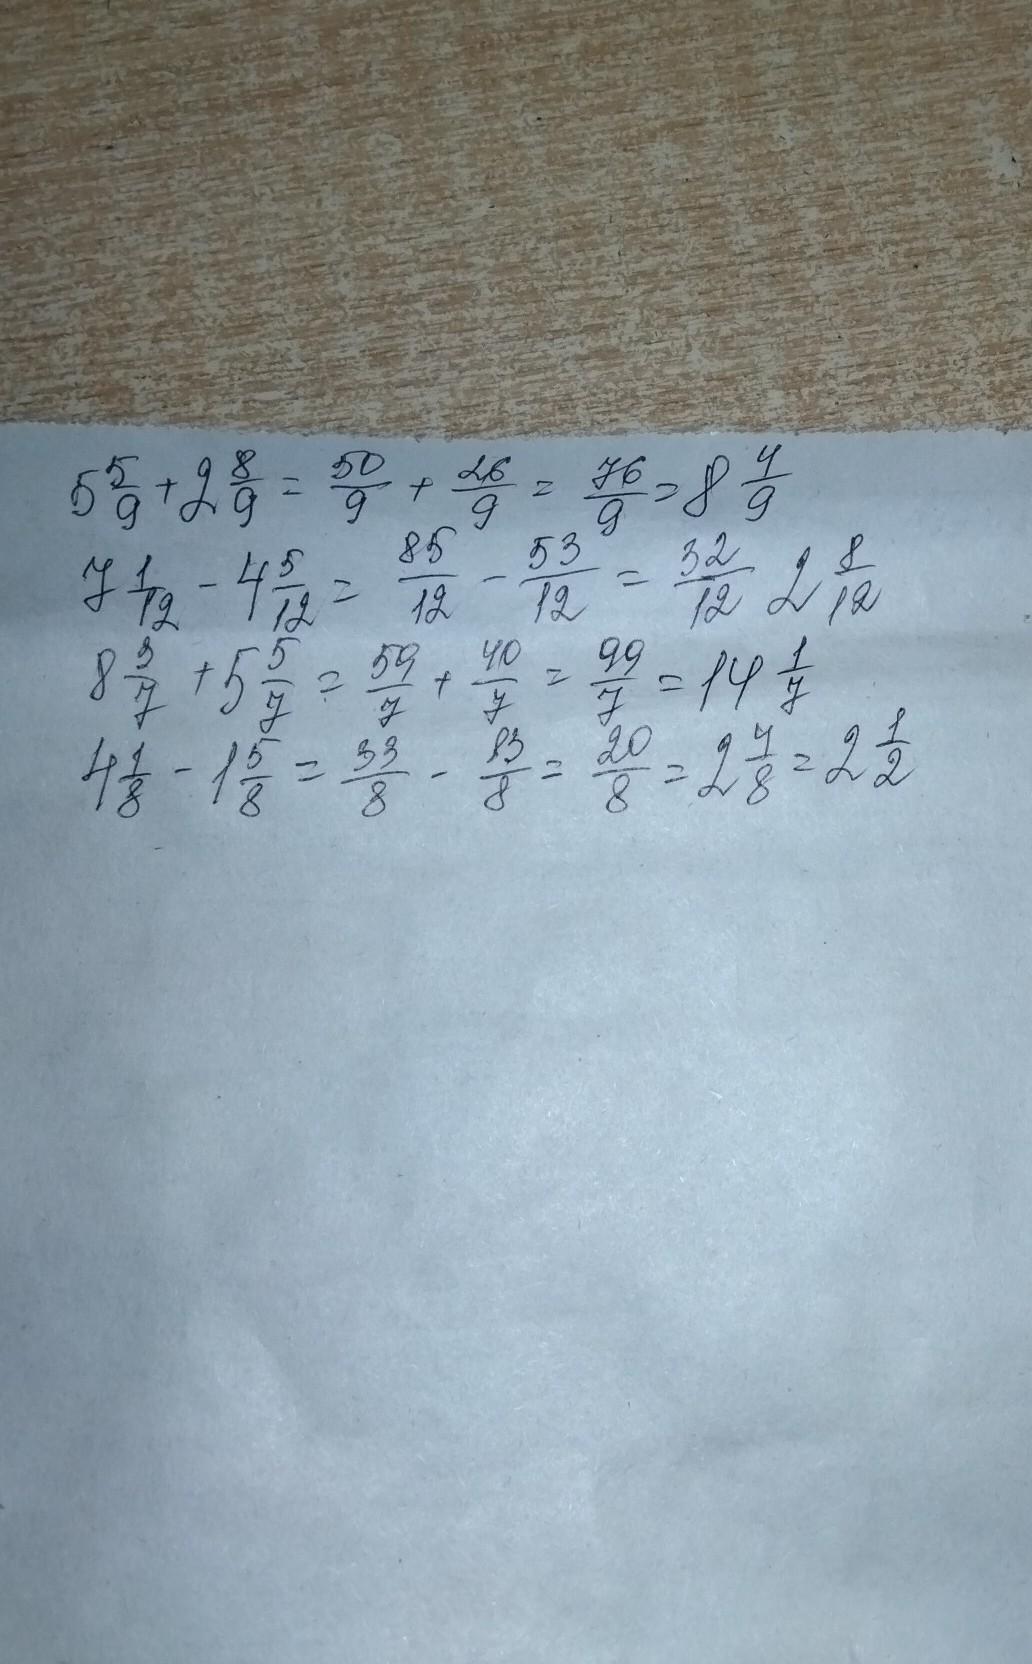 5 5/9 + 2 8/9 = 50/9 + 26/9 = 76/9 = 8 4/9
7 1/12 - 4 5/12 = 85/12 - 53/12 = 32/12 2 8/12
8 3/7 + 5 5/7 = 59/7 + 40/7 = 99/7 = 14 1/7
4 1/8 - 1 5/8 = 33/8 - 13/8 = 20/8 = 2 4/8 = 2 1/2